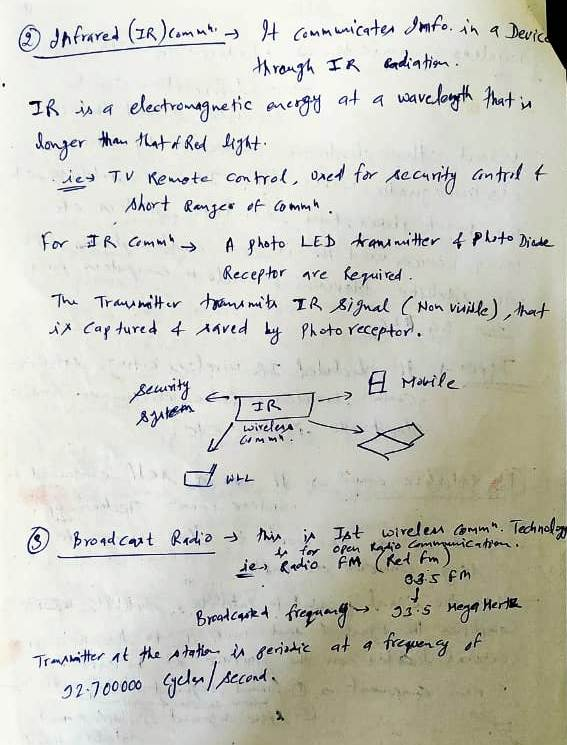 ② Infrared (IR) Commn. → It communicates Info. in a Device
through IR Radiation.
IR is a electromagnetic energy at a wavelength that is
longer than that of Red light.
ie→ TV Remote control, used for security control &
short Ranges of Commn.
For IR Commn → A photo LED transmitter & Photo Diode
Receptor are Required.
The Transmitter transmits IR Signal (Non visible), that
is Captured & saved by Photoreceptor.
Security
System
IR
wireless
Commn.
Mobile
WLL
③ Broadcast Radio → this is Ist wireless Commn. Technology
is for open Radio Communication.
ie→ Radio FM (Red fm)
93.5 FM
↓
Broadcasted frequency → 93.5 Mega Hertz
Transmitter at the station is periodic at a frequency of
92.700000 Cycles/second.
2